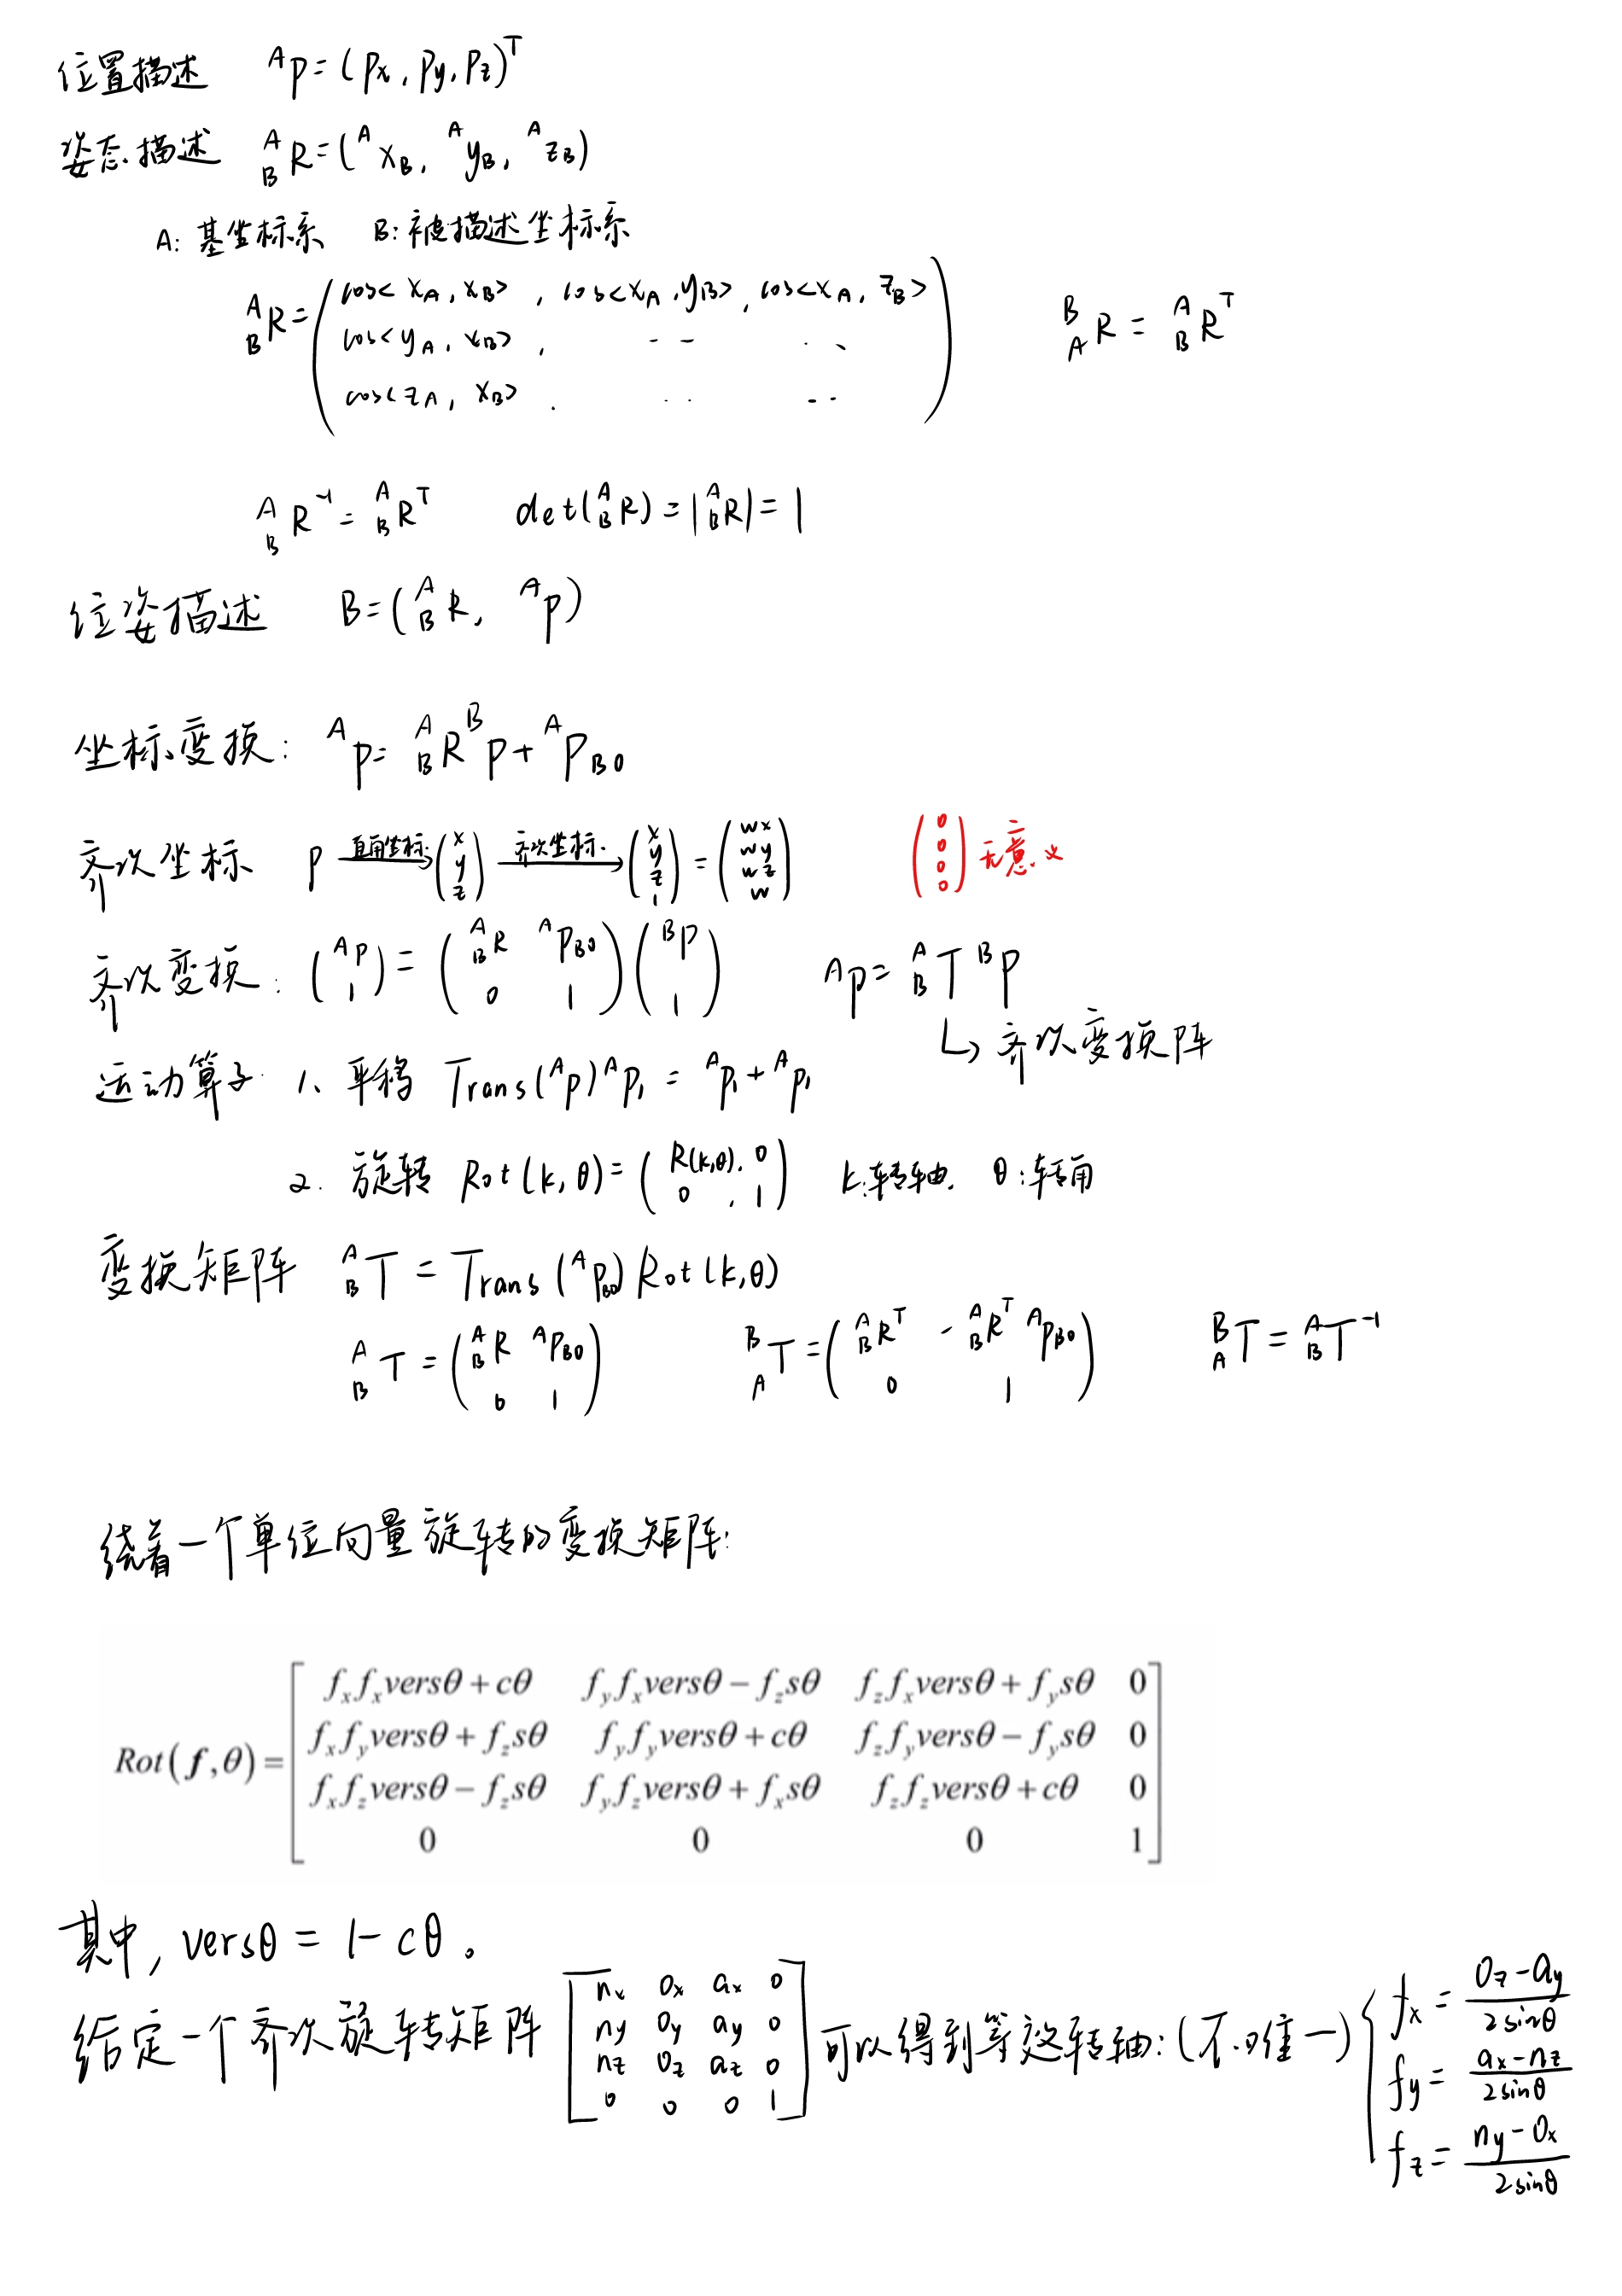 位置描述 ᴬp=(px, py, pz)ᵀ
姿态描述 ᴬ_B R=(ᴬx_B, ᴬy_B, ᴬz_B)
A: 基坐标系 B: 被描述坐标系
ᴬ_B R= ( cos<x_A, x_B> , cos<x_A, y_B> , cos<x_A, z_B> ) ᴮ_A R = ᴬ_B Rᵀ
cos<y_A, x_B> , -- ..
cos<z_A, x_B> . .. --
ᴬ_B R⁻¹ = ᴬ_B Rᵀ det(ᴬ_B R) = |ᴬ_B R| = 1
位姿描述 B=(ᴬ_B R, ᴬp)
坐标变换: ᴬp= ᴬ_B R ᴮp + ᴬp_BO
齐次坐标 p 直角坐标→ (x y z) 齐次坐标→ (x y z 1) = (wx wy wz w) (0 0 0 0) 无意义
齐次变换: (ᴬp 1) = (ᴬ_B R ᴬp_BO 0 1) (ᴮp 1) ᴬp= ᴬ_B T ᴮp
↳ 齐次变换阵
运动算子 1. 平移 Trans(ᴬp)ᴬp₁ = ᴬp₁ + ᴬp₁
2. 旋转 Rot(k, θ)= (R(k,θ), 0 0 , 1) k:转轴. θ:转角
变换矩阵 ᴬ_B T = Trans(ᴬp_BO) Rot(k,θ)
ᴬ_B T = (ᴬ_B R ᴬp_BO 0 1) ᴮ_A T = (ᴬ_B Rᵀ -ᴬ_B Rᵀ ᴬp_BO 0 1) ᴮ_A T = ᴬ_B T⁻¹
绕着一个单位向量旋转的变换矩阵:
Rot(f,θ)= [ f_x f_x versθ+cθ f_y f_x versθ−f_z sθ f_z f_x versθ+f_y sθ 0
f_x f_y versθ+f_z sθ f_y f_y versθ+cθ f_z f_y versθ−f_y sθ 0
f_x f_z versθ−f_z sθ f_y f_z versθ+f_x sθ f_z f_z versθ+cθ 0
0 0 0 1 ]
其中, versθ = 1- cθ。
给定一个齐次旋转矩阵 [ nx ox ax 0
ny oy ay 0
nz oz az 0
0 0 0 1 ] 可以得到等效转轴:(不唯一) { fx = (oz-ay)/(2sinθ)
fy = (ax-nz)/(2sinθ)
fz = (ny-ox)/(2sinθ)